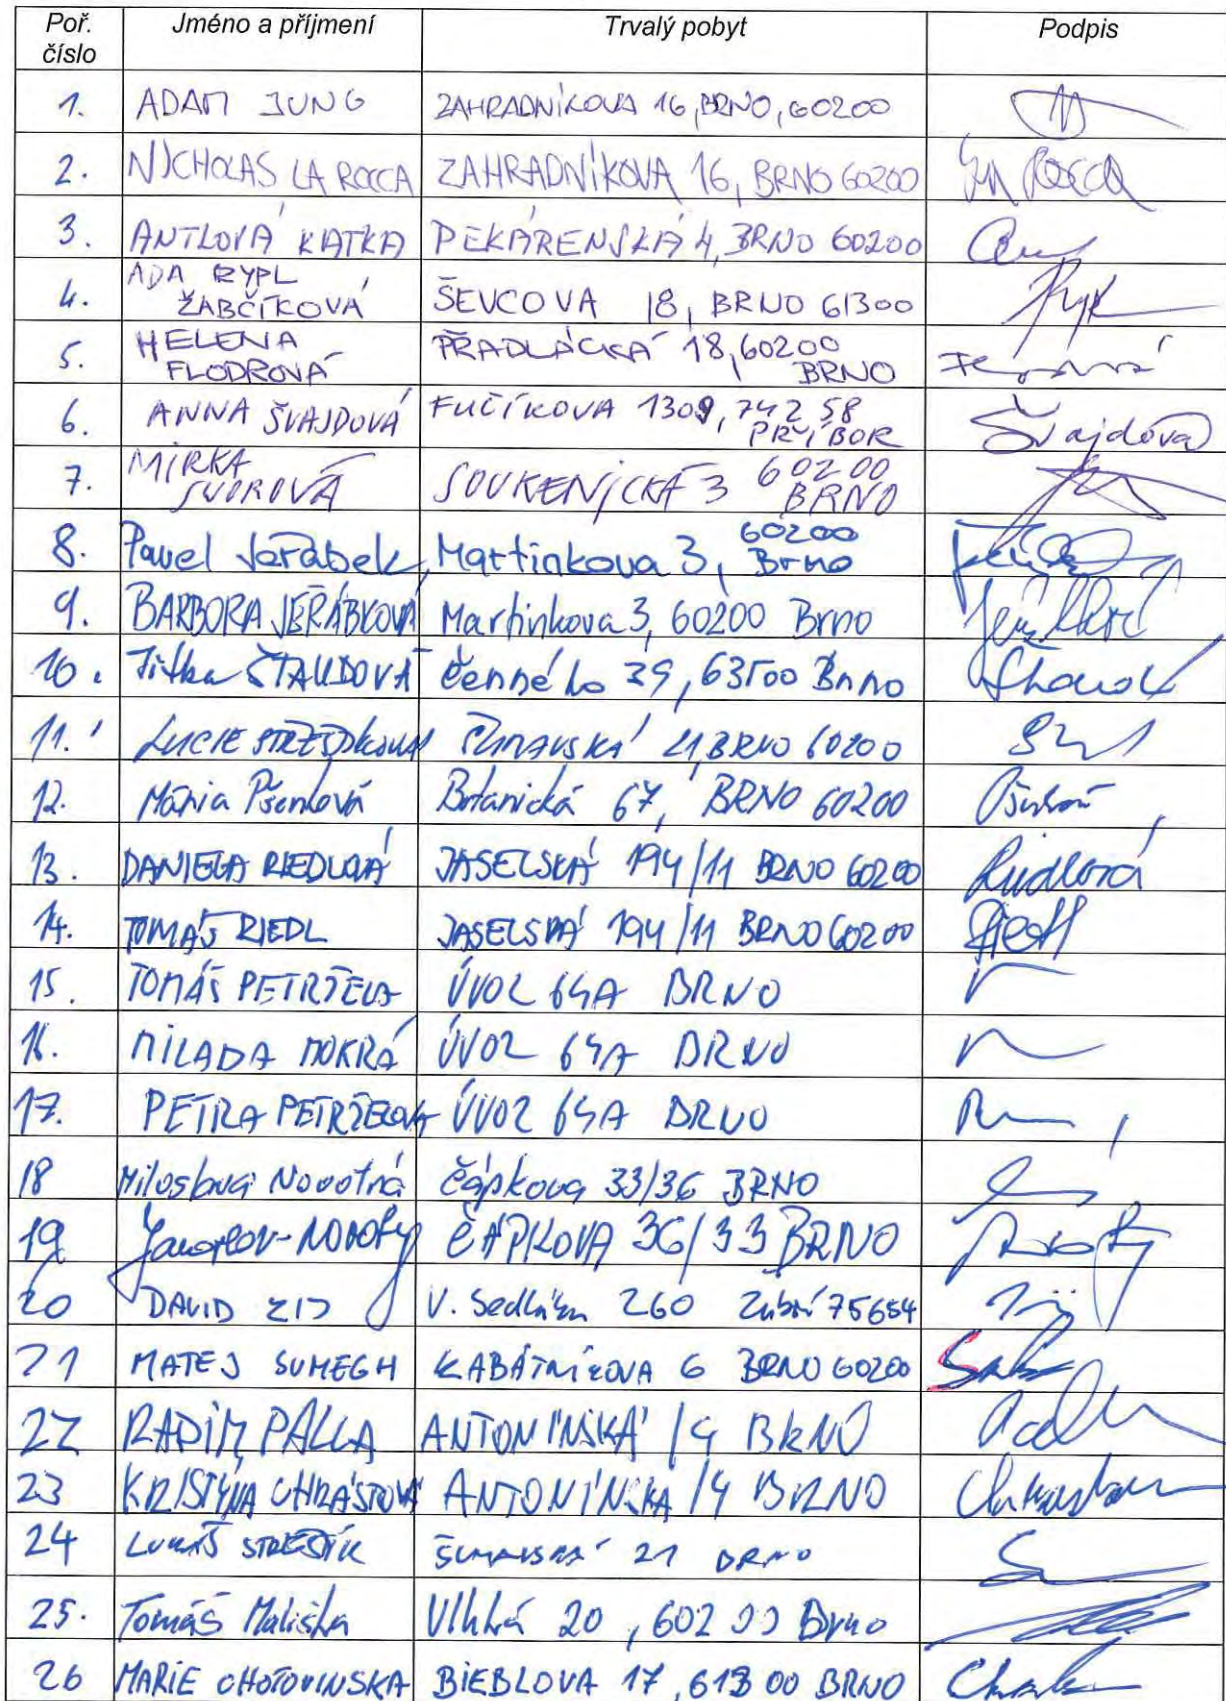 Poř. číslo Jméno a příjmení Trvalý pobyt Podpis
1. ADAM JUNG ZAHRADNÍKOVA 16, BRNO, 60200
2. NICHOLAS LA ROCCA ZAHRADNÍKOVA 16, BRNO 60200
3. ANTLOVÁ KATKA PEKÁRENSKÁ 4, BRNO 60200
4. ADA RYPL ŽABČÍKOVÁ ŠEVCOVA 18, BRNO 61300
5. HELENA FLODROVÁ PŘADLÁCKÁ 18, 60200 BRNO
6. ANNA ŠVAJDOVÁ FUČÍKOVA 1309, 742 58 PŘÍBOR Švajdová
7. MIRKA SVOROVÁ SOUKENICKÁ 3 60200 BRNO
8. Pavel Jeřábek, Martinkova 3, 60200 Brno
9. BARBORA JEŘÁBKOVÁ Martinkova 3, 60200 Brno
10. Jitka ŠTAUDOVÁ 63500 Brno
11. LUCIE BRNO 60200
12. Mária Pšenková Botanická 67, BRNO 60200
13. DANIELA RIEDLOVÁ JASELSKÁ 194/11 BRNO 60200 Riedlová
14. TOMÁŠ RIEDL JASELSKÁ 194/11 BRNO 60200 Riedl
15. TOMÁŠ PETRŽELA ÚVOZ 64A BRNO
16. MILADA MOKRÁ ÚVOZ 64A BRNO
17. PETRA PETRŽELOVÁ ÚVOZ 64A BRNO
18 Miloslava Novotná Čápkova 33/36 BRNO
19 Jaroslav NOVOTNÝ ČÁPKOVA 36/33 BRNO
20 DAVID V. Sedlářem 260 Zubří 75654
21 MATEJ SUMEGH KABÁTNÍKOVA 6 BRNO 60200
22 RADIM PALLA ANTONÍNSKÁ /4 BRNO
23 KRISTÝNA CHRÁSTOVÁ ANTONÍNSKÁ /4 BRNO
24 LUKÁŠ ŠUMAVSKÁ 21 BRNO
25. Tomáš Mališka Vlhká 20, 602 00 Brno
26 MARIE CHOTOVINSKA BIEBLOVA 17, 613 00 BRNO